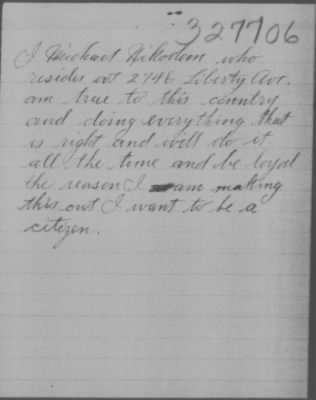 327706
I Michael Nikodem who
resides at 2746 Liberty Ave.
am true to this country
and doing everything that
is right and will do it
all the time and be loyal
the reason I am making
this out I want to be a
citizen.